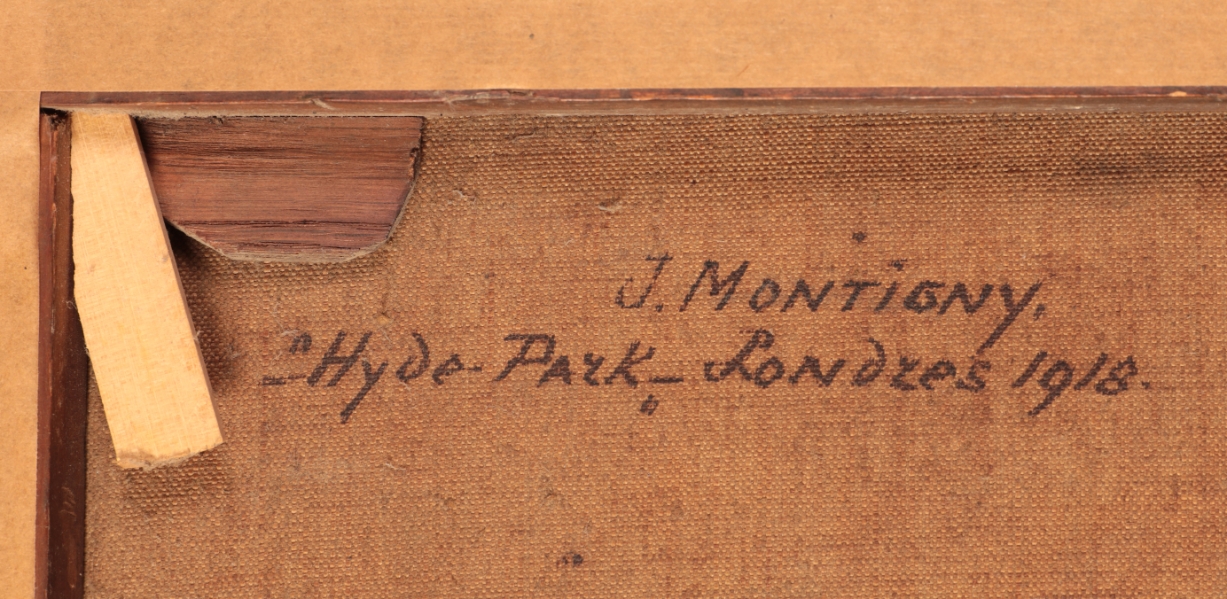 J. MONTIGNY.
"Hyde-Park" - Londres 1918.